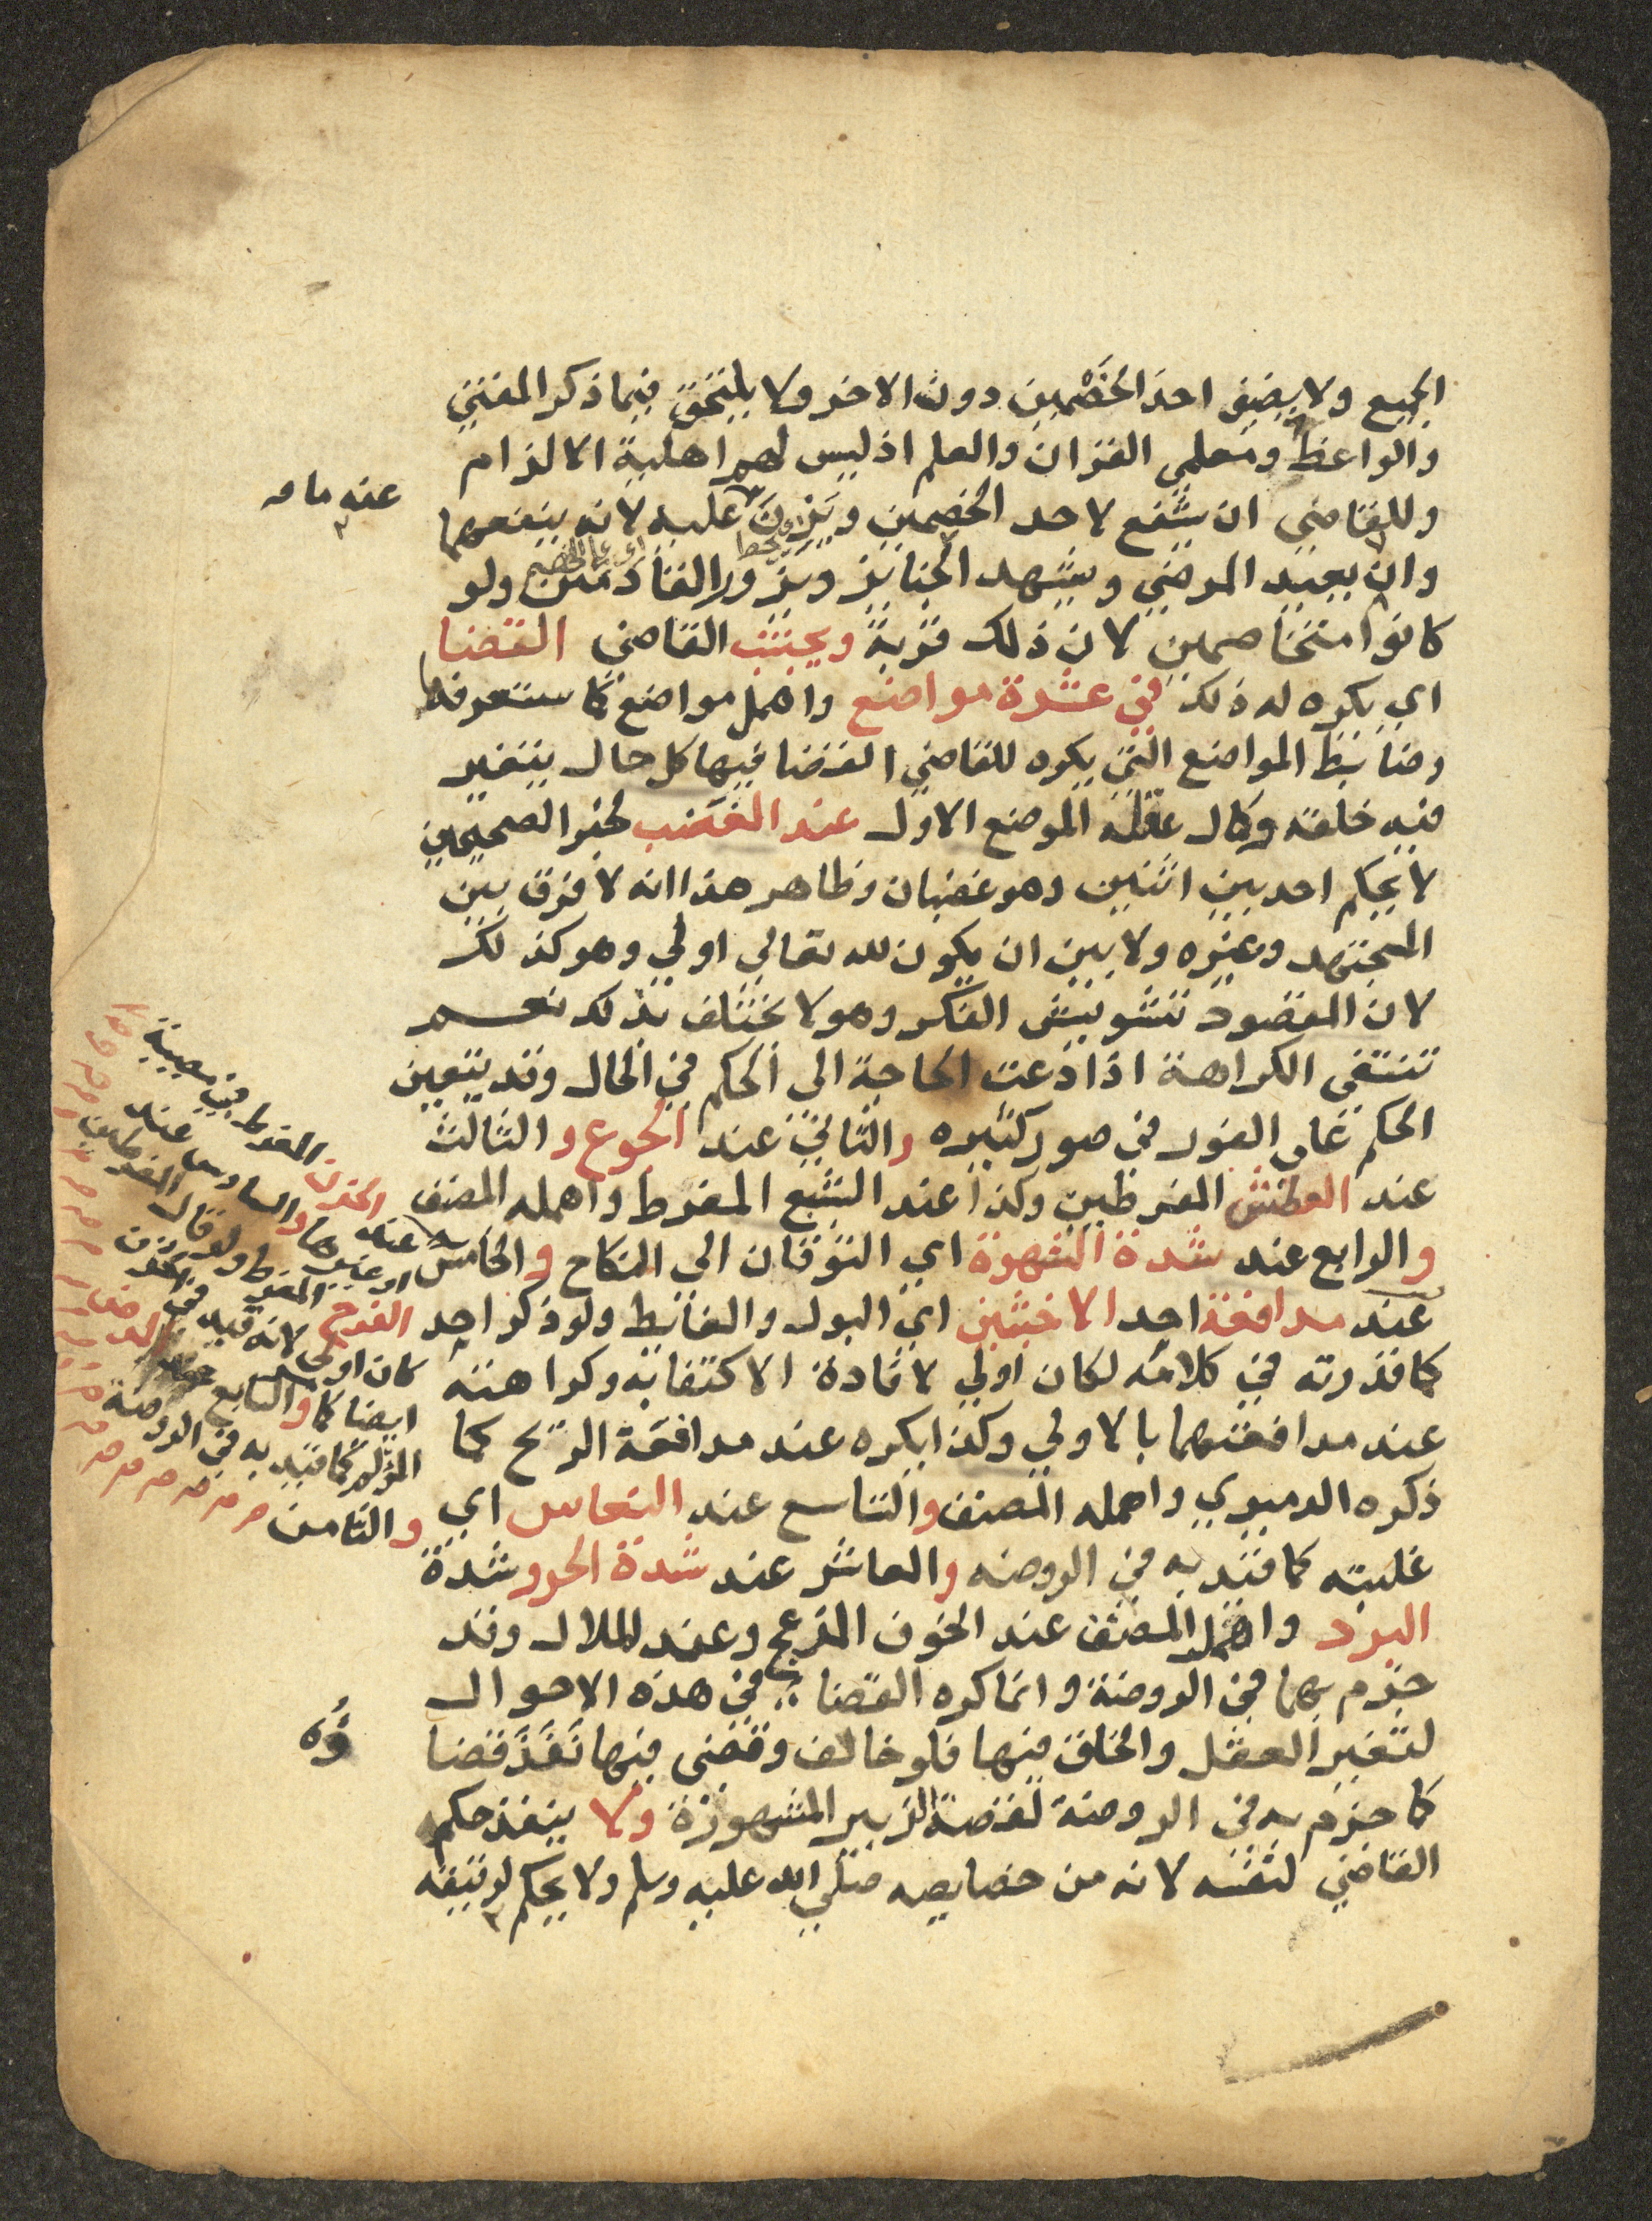 الجميع ولا يضيف احد الخَصْمين دون الاخر ولا يلتحق فيما ذكر المفتي
والواعظ ومعلمي القران والعلم اذ ليس لهم اهلية الالزام
وللقاضي ان يشفع لاحد الخصمين ويزن عليه لانه ينفعهما
وان يعيد المرضي ويشهد الجنايز ويزور القادمين ولو
كانوا متخاصمين لان ذلك قربة ويجتنب القاضي القضا
اي يكره له ذلك في عشرة مواضع واهمل مواضع كما ستعرفها
وضابط المواضع التي يكره للقاضي القضا فيها كل حال يتغير
فيه خلقه وكمال عقله الموضع الاول عند الغضب لخبر الصحيحين
لا يحكم احد بين اثنين وهو غضبان وظاهر هذا انه لا فرق بين
المجتهد وغيره ولا بين ان يكون لله تعالي اولي وهو كذلك
لان المقصود تشويش الفكر وهو لا يختلف بذلك نعم
تنتفى الكراهة اذا دعت الحاجة الى الحكم في الحال وقد يتعين
الحكم على الفور في صور كثيره والثاني عند الجوع والثالث
عند العطش المفرطين وكذا عند الشبع المفرط واهمله المصنف
والرابع عند شدة الشهوة اي التوقان الى النكاح والخامس عند
الحزن المفرط في مصيبة
او غيرها والسادس عند
الفرح المفرط ولو قال المفرطين
كان اولى لانه قيد في الحزن
ايضا كما والسابع عند المرض
المؤلم كما قيد به في الروضة
والثامن
عند مدافعة احد الاخبثين اي البول والغائط ولو ذكر احد
كما قدرته في كلامه لكان اولي لافادة الاكتفا به وكراهته
عند مدافعتهما بالاولي وكذا يكره عند مدافعة الريح كما
ذكره الدميري واهمله المصنف والتاسع عند النعاس اي
غلبته كما قيد به في الروضه والعاشر عند شدة الحر وشدة
البرد واهمل المصنف عند الخوف المزعج وعند الملال وقد
جزم بهما في الروضة وانما كره القضا في هذه الاحوال
لتغير العقل والخلق فيها فلو خالف وقضى فيها نَفَذَ قضا
ؤُه
كما جزم به في الروضة لقصة الزبير المشهورة ولا ينفذ حكم
القاضي لنفسه لانه من خصايصه صلي الله عليه وسلم ولا يحكم لرقيقه